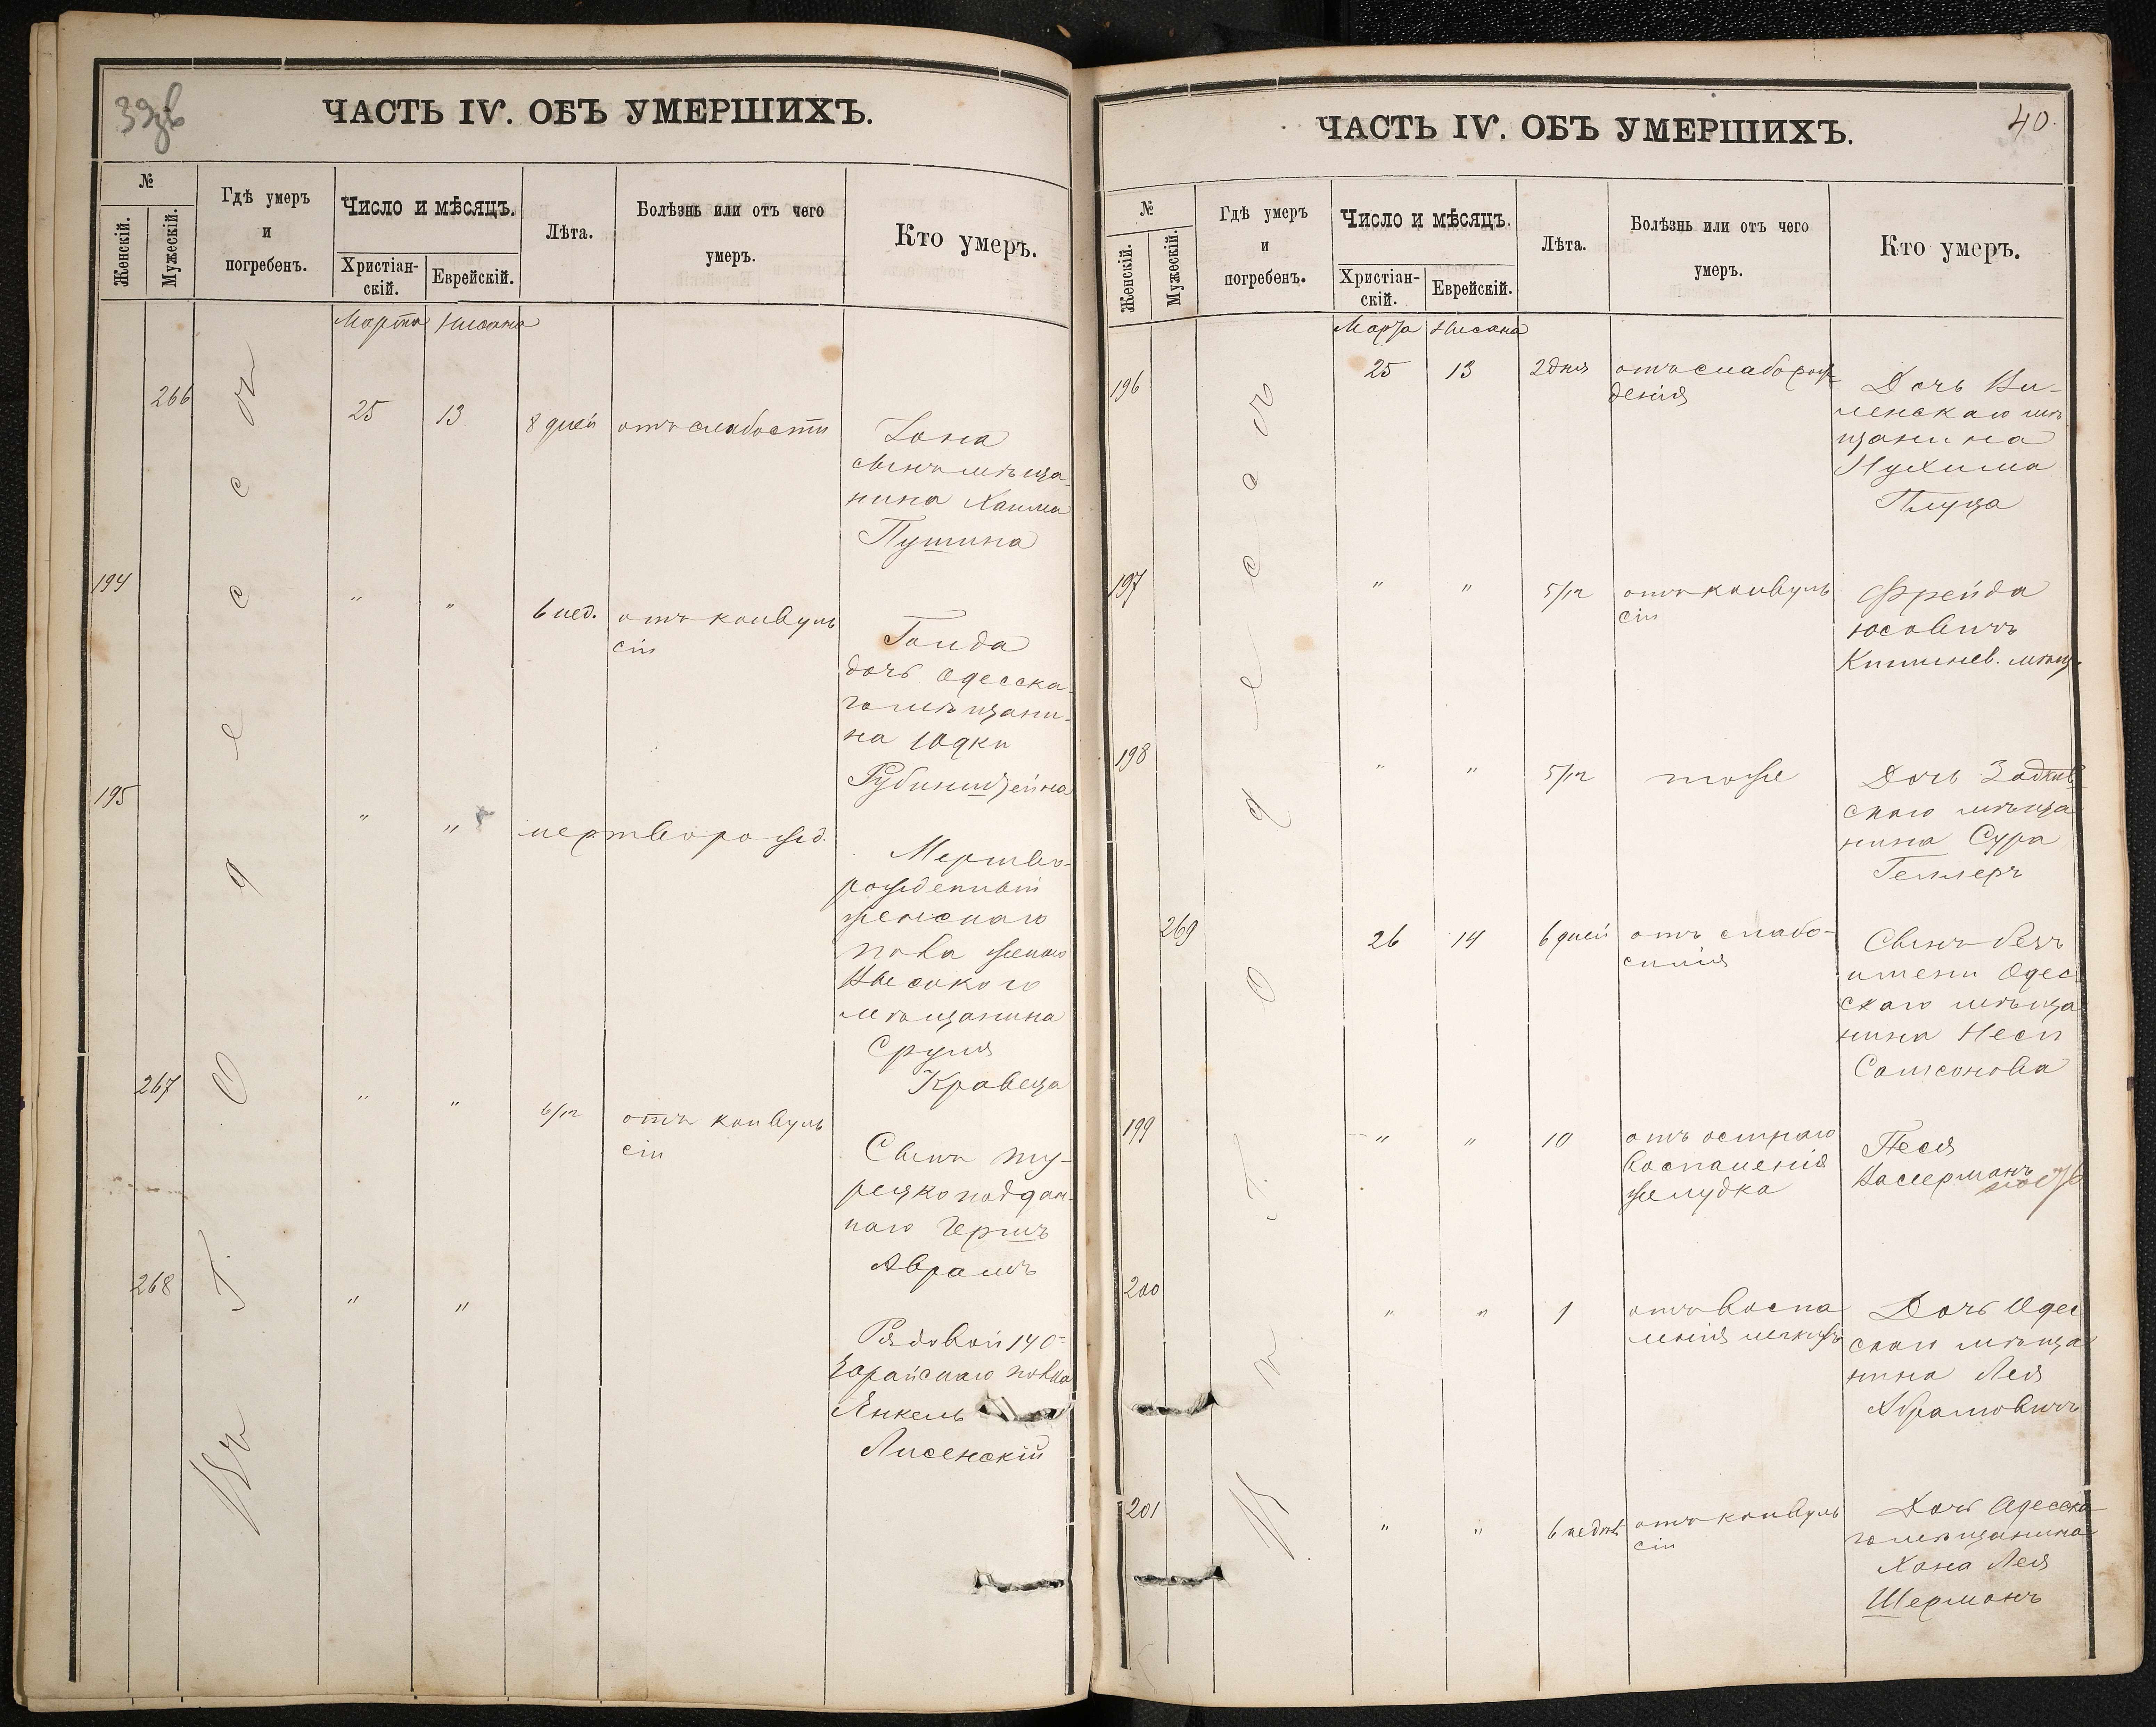 39
ЧАСТЬ IV. ОБЪ УМЕРШИХЪ.
№
Женскій.
Мужескій.
Гдѣ умеръ
и
погребенъ.
Число и мѣсяцъ.
Христіан-
скій.
Еврейскій.
Лѣта.
Болѣзнь или отъ чего
умеръ.
Кто умеръ.
Марта Нисана
Въ г. Одессѣ
266 25 13 8 дней отъ слабости
Іона
сынъ мѣща-
нина Хаима
Пушина
194 " " 6 нед. отъ конвуль
сіи
Голда
дочь Одесска-
го мѣщани-
на Юдки
Рубинштейна
195 " " мертворожд.
Мертво-
рожденный
женскаго
пола
мѣщанина
Сруля
Кравеца
267 " " 6/12 отъ конвуль
сіи
Сынъ ту-
рецкоподдан-
наго Гершъ
Аврамъ
268 " "
Рядовой 140
Зарайскаго полка
Янкель
Лисенскій
40.
ЧАСТЬ IV. ОБЪ УМЕРШИХЪ.
№
Женскій.
Мужескій.
Гдѣ умеръ
и
погребенъ.
Число и мѣсяцъ.
Христіан-
скій.
Еврейскій.
Лѣта.
Болѣзнь или отъ чего
умеръ.
Кто умеръ.
Марта Нисана
Въ г. Одессѣ
196 25 13 2 дня отъ слаборож-
денія
Дочь Ви-
ленскаго мѣ
щанина
Нухима
Плуца
197 " " 5/12 отъ конвуль
сіи
Фрейда
Юсовичъ
Кишинев. мѣщ.
198 " " 5/12 тоже
Дочь
скаго мѣща
нина Сура
Геллеръ
269 26 14 6 дней отъ слабо-
силія
Сынъ безъ
имени Одес
скаго мѣща
нина
Самсонова
199 " " 10 отъ остраго
воспаленія
желудка
Песя
Вассерманъ
200 " " 1 отъ воспа
ленія легкихъ
Дочь Одес
скаго мѣща
нина Лея
Абрамовичъ
201 " " 6 недѣль отъ конвуль
сіи
Дочь Одесска
го мѣщанина
Хана Лея
Шерманъ